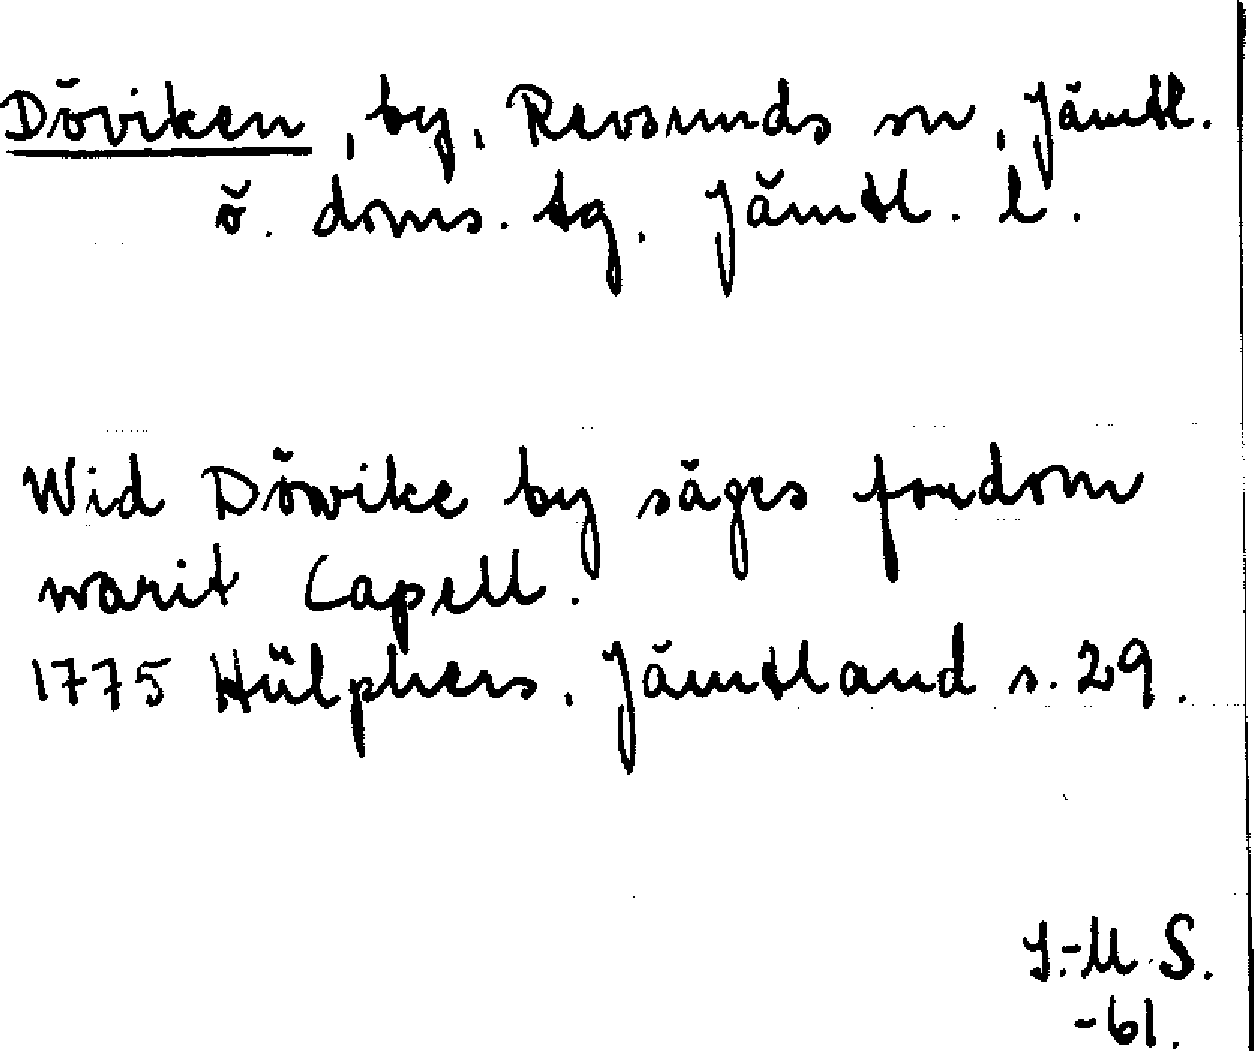 Döviken, by, Revsunds sn, Jämtl.
ö. doms. tg. Jämtl. l.
Wid Döwike by säges fordom
warit Capell.
1775 Hülphers, Jämtland s. 29.
I.-M. S.
-61.